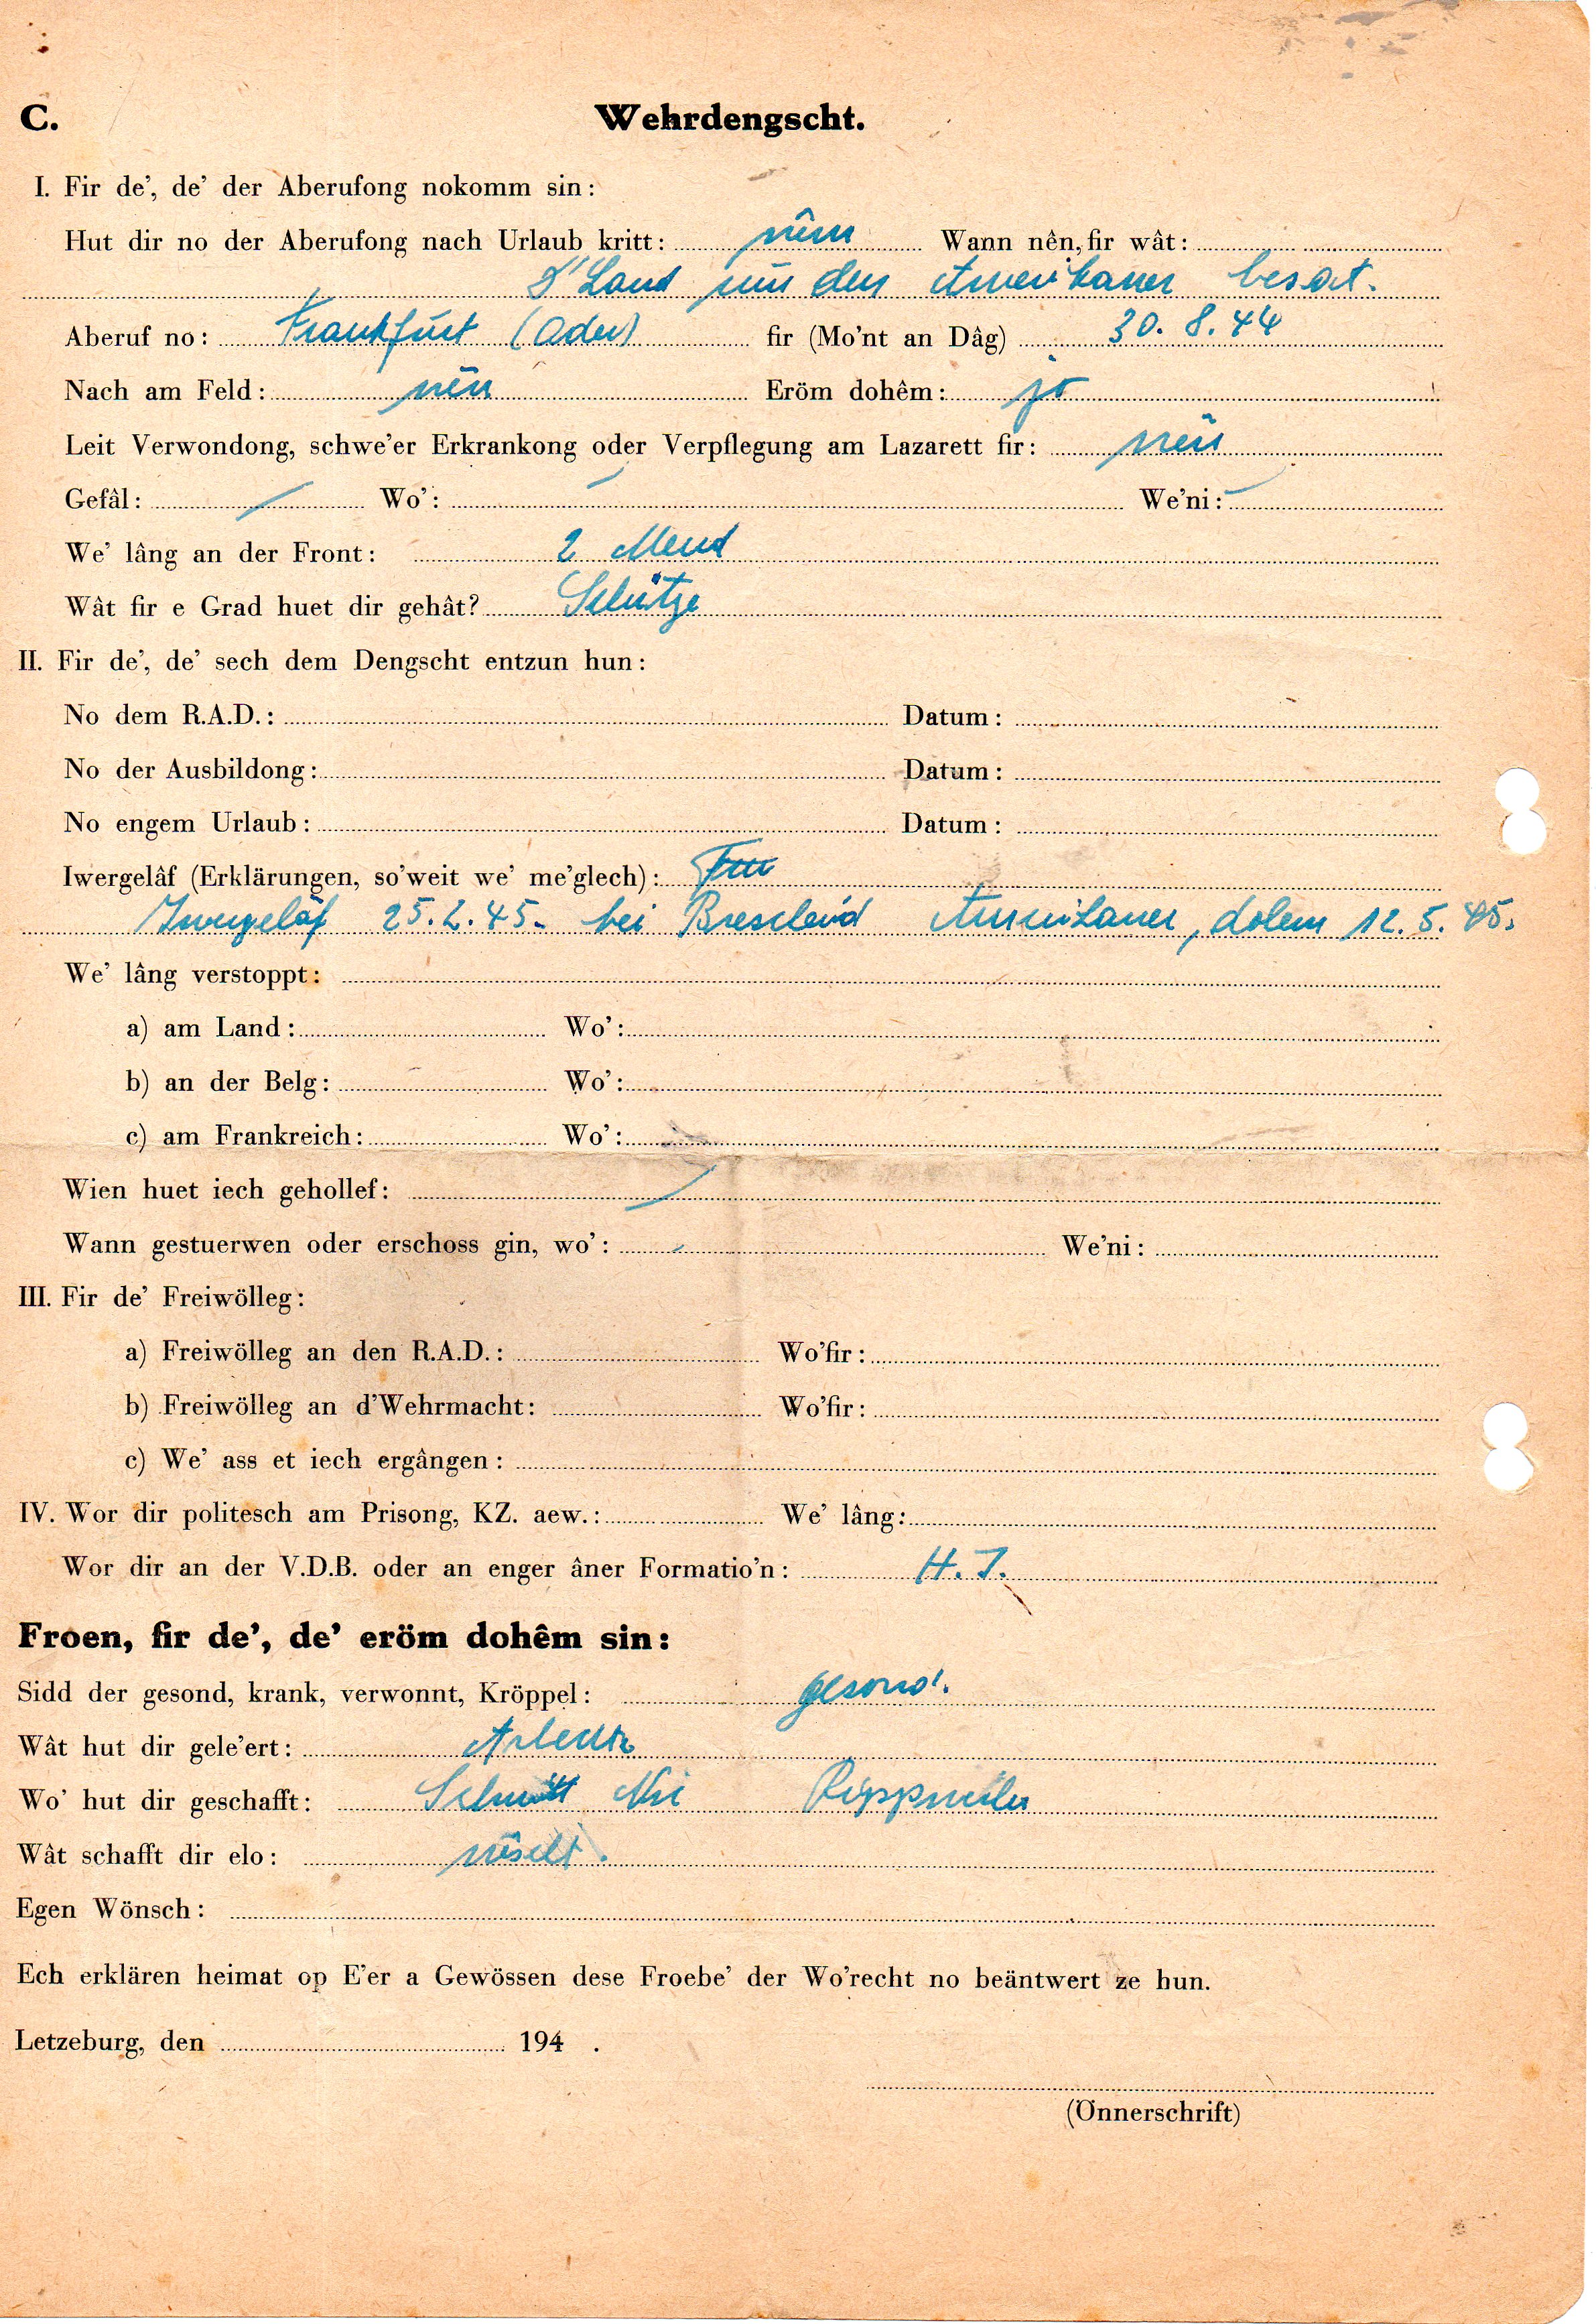 C. Wehrdengscht.
I. Fir de', de' der Aberufong nokomm sin:
Hut dir no der Aberufong nach Urlaub kritt: nên Wann nên, fir wât:
D'Land vun den Amerikaner besat.
Aberuf no: Frankfurt (Oder) fir (Mo'nt an Dâg) 30. 8. 44
Nach am Feld: nên Eröm dohêm: jo
Leit Verwondong, schwe'er Erkrankong oder Verpflegung am Lazarett fir: nên
Gefâl: / Wo': We'ni:
We' lâng an der Front: 2 Mend
Wât fir e Grad huet dir gehât? Schütze
II. Fir de', de' sech dem Dengscht entzun hun:
No dem R.A.D.: Datum:
No der Ausbildong: Datum:
No engem Urlaub: Datum:
Iwergelâf (Erklärungen, so'weit we' me'glech):
Iwergelâf 25.2.45. bei Amerikaner, dohem 12. 5. 45.
We' lâng verstoppt:
a) am Land: Wo':
b) an der Belg: Wo':
c) am Frankreich: Wo':
Wien huet iech gehollef:
Wann gestuerwen oder erschoss gin, wo': We'ni:
III. Fir de' Freiwölleg:
a) Freiwölleg an den R.A.D.: Wo'fir:
b) Freiwölleg an d'Wehrmacht: Wo'fir:
c) We' ass et iech ergângen:
IV. Wor dir politesch am Prisong, KZ. aew.: We' lâng:
Wor dir an der V.D.B. oder an enger âner Formatio'n: H. J.
Froen, fir de', de' eröm dohêm sin:
Sidd der gesond, krank, verwonnt, Kröppel: gesond.
Wât hut dir gele'ert:
Wo' hut dir geschafft: Schmitt Nic Rippweiler
Wât schafft dir elo: nêscht.
Egen Wönsch:
Ech erklären heimat op E'er a Gewössen dese Froebe' der Wo'recht no beäntwert ze hun.
Letzeburg, den 194 .
(Önnerschrift)